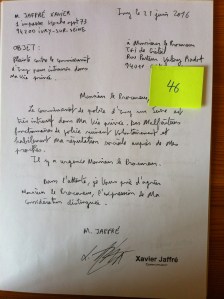 M. JAFFRÉ XAVIER
94200 IVRY-SUR-SEINE
Ivry le 21 juin 2016
OBJET:
Plainte contre le commissariat
d'Ivry pour intrusion dans
Ma vie privée.
à Monsieur le Procureur
Rue Pasteur Vallery Radot
94011
46
Monsieur le Procureur,
Le Commissariat de police d'Ivry sur Seine est
très intrusif dans Ma vie privée. Des Malfaisants
fonctionnaires de police ruinent Volontairement et
habilement Ma réputation sociale auprès de Mes
proches.
Il y a urgence Monsieur le Procureur.
Dans l'attente, je Vous prie d'agréer
Monsieur le Procureur, l'expression de Ma
Considération distinguée.
M. JAFFRÉ
Xavier Jaffré